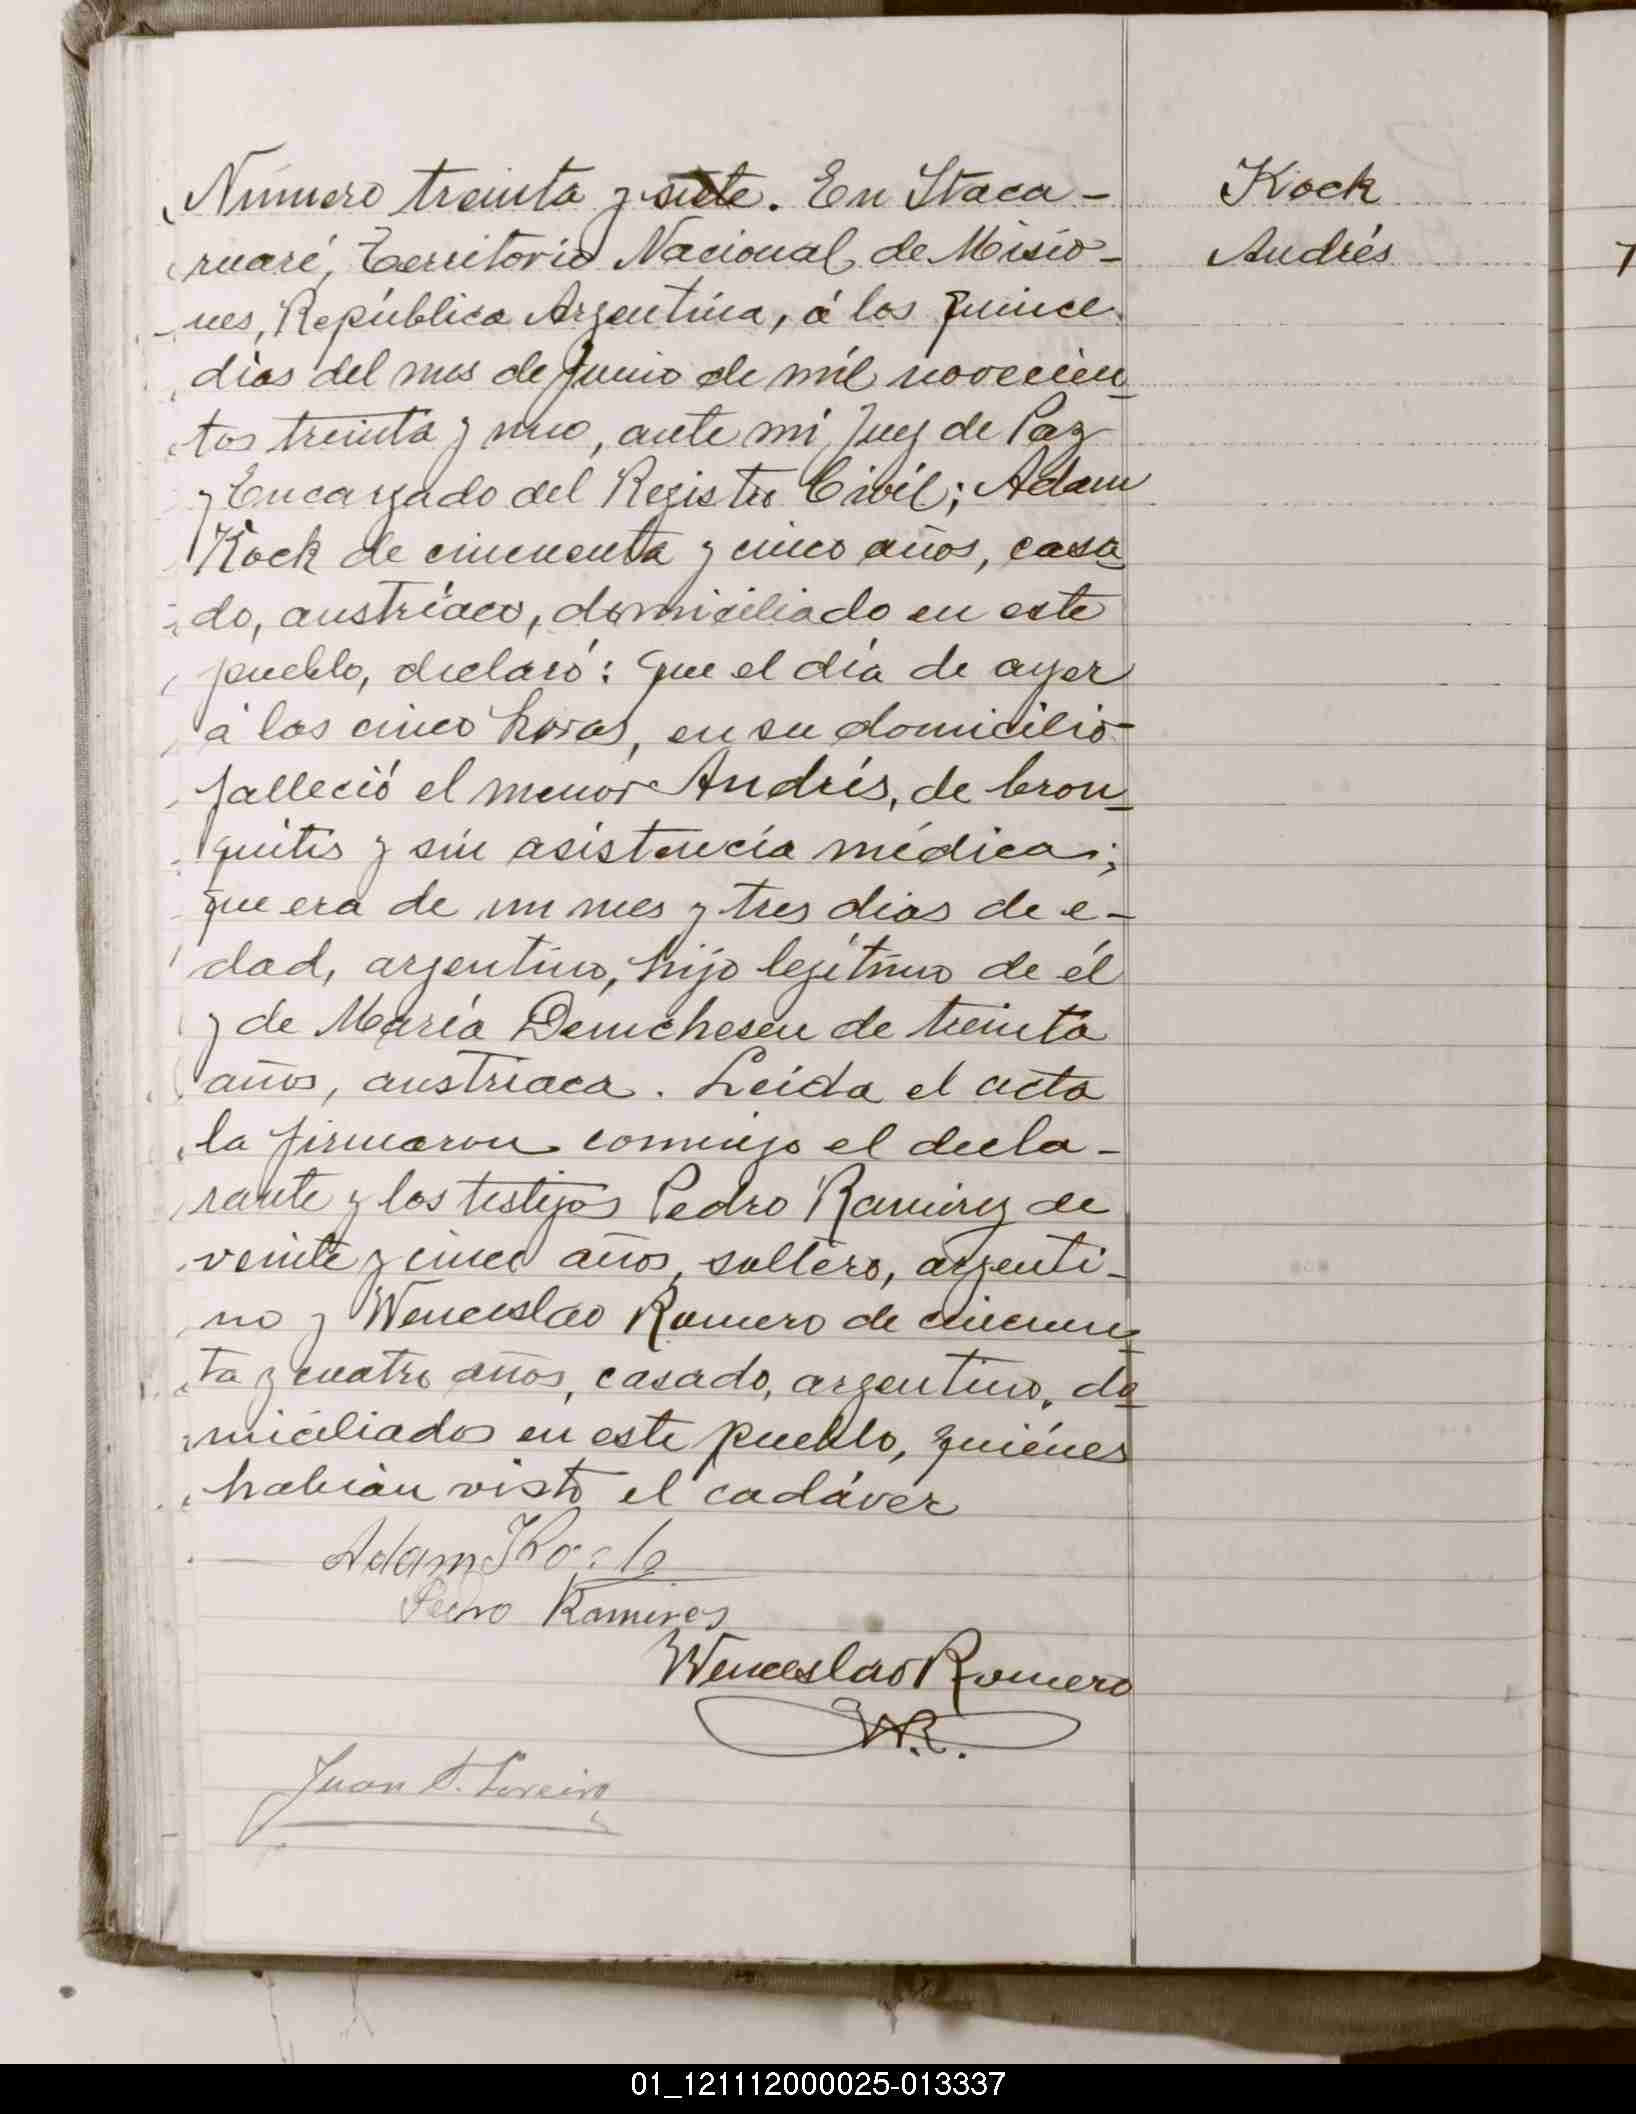 Número treinta y siete. En Itaca-
ruaré, Territorio Nacional de Misio-
nes, República Argentina, á los quince
dias del mes de Junio de mil novecien-
tos treinta y uno, ante mi, Juez de Paz
y Encargado del Registro Civil; Adam
Kock de cincuenta y cinco años, casa-
do, austríaco, domiciliado en este
pueblo, declaró: que el día de ayer
á las cinco horas, en su domicilio
falleció el menor Andrés, de bron-
quitis y sin asistencia médica;
que era de un mes y tres dias de e-
dad, argentino, hijo legítimo de él
y de María Demchesen de treinta
años, austriaca. Leida el acta
la firmaron conmigo el decla-
rante y los testigos Pedro Ramirez de
veinte y cinco años, soltero, argenti-
no y Wenceslao Romero de cincuen-
ta y cuatro años, casado, argentino, do-
miciliados en este pueblo, quiénes
habian visto el cadáver
Adam Kock
Pedro Ramires
Wenceslao Romero
W.R.
Juan
Kock
Andrés
01_121112000025-013337